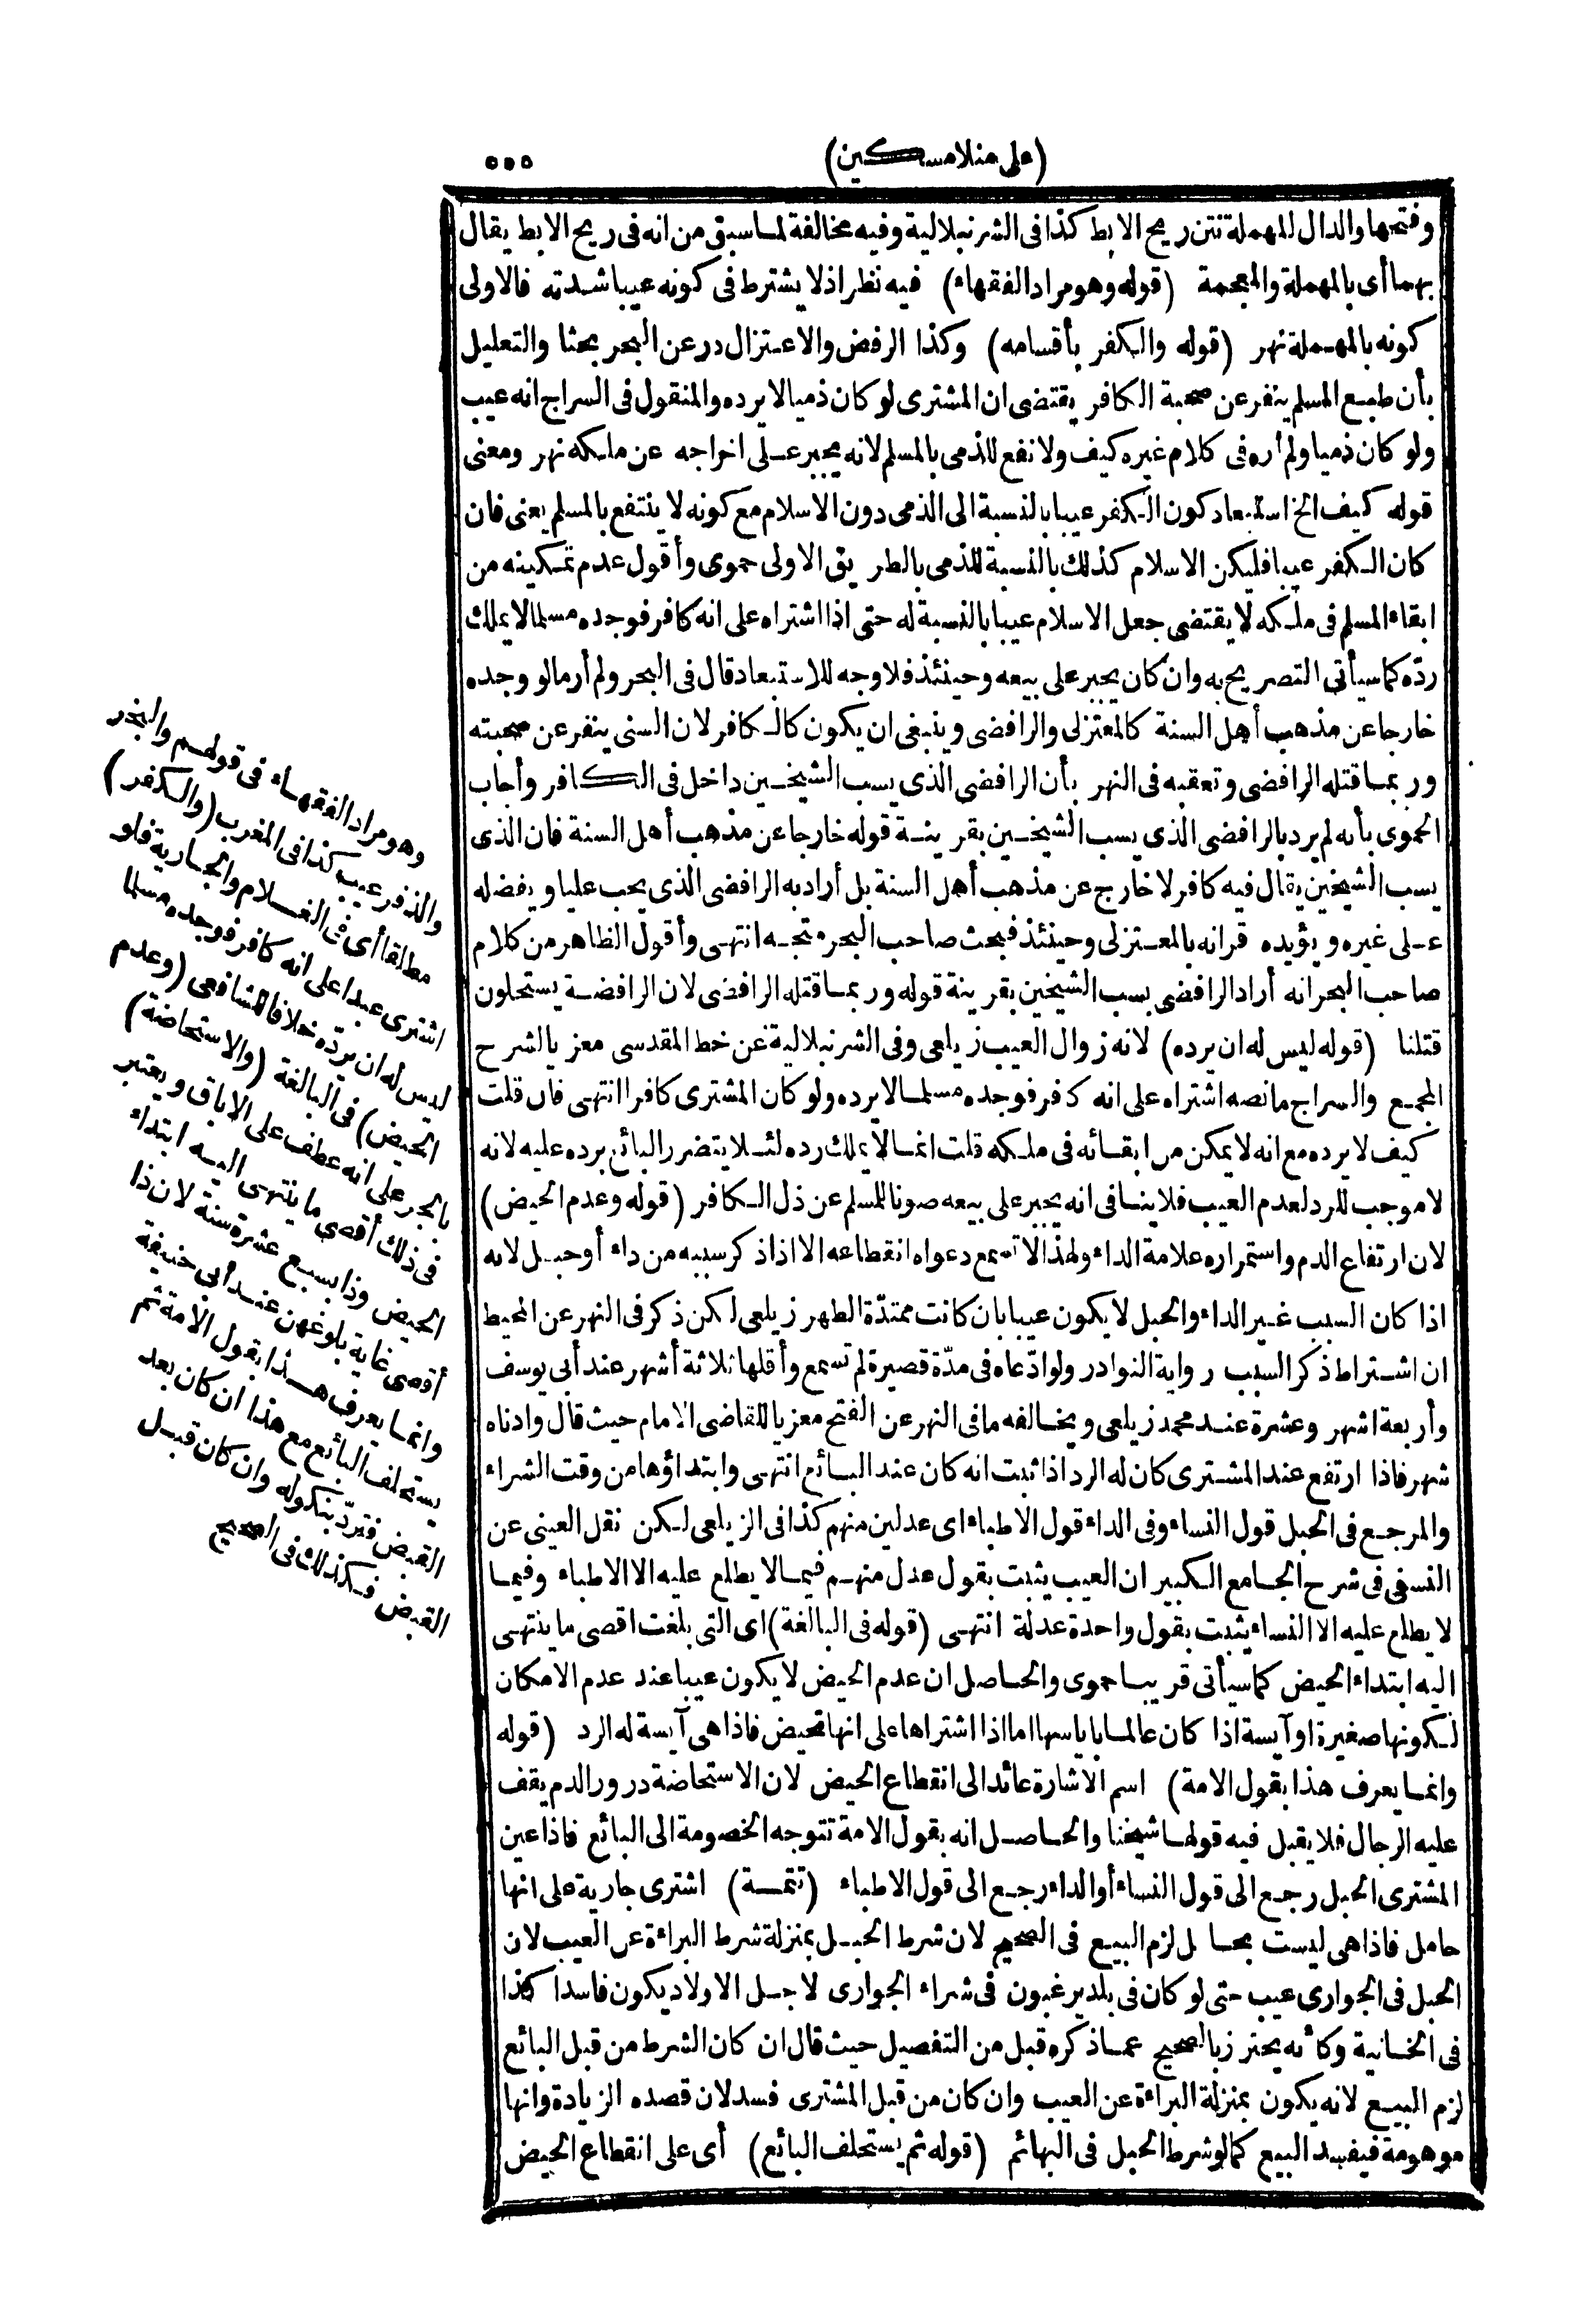 (على منلا مسكين)
٥٥٥
وفتحها والدال المهملة نتن ريح الابط كذا فى الشرنبلالية وفيه مخالفة لما سبق من انه فى ريح الابط يقال
بهما أى بالمهملة والمعجمة (قوله وهو مراد الفقهاء) فيه نظر اذ لا يشترط فى كونه عيبا شدته فالاولى
كونه بالمهملة نهر (قوله والكفر بأقسامه) وكذا الرفض والاعتزال در عن البحر بحثا والتعليل
بأن طبع المسلم ينفر عن صحبة الكافر يقتضى ان المشترى لو كان ذميا لا يرده والمنقول فى السراج انه عيب
ولو كان ذميا ولم أره فى كلام غيره كيف ولا نفع للذمى بالمسلم لانه يجبر على اخراجه عن ملكه نهر ومعنى
قوله كيف الخ استبعاد كون الكفر عيبا بالنسبة الى الذمى دون الاسلام مع كونه لا ينتفع بالمسلم يعنى فان
كان الكفر عيبا فليكن الاسلام كذلك بالنسبة للذمى بالطريق الاولى حموى وأقول عدم تمكينه من
ابقاء المسلم فى ملكه لا يقتضى جعل الاسلام عيبا بالنسبة له حتى اذا اشتراه على انه كافر فوجده مسلما لا يملك
ردّه كما سيأتى التصريح به وان كان يجبر على بيعه وحينئذ فلا وجه للاستبعاد قال فى البحر ولم أر ما لو وجده
خارجا عن مذهب أهل السنة كالمعتزلى والرافضى وينبغى ان يكون كالكافر لان السنى ينفر عن صحبته
وربما قتله الرافضى وتعقبه فى النهر بأن الرافضى الذى يسب الشيخين داخل فى الكافر وأجاب
الحموى بأنه لم يرد بالرافضى الذى يسب الشيخين بقرينة قوله خارجا عن مذهب أهل السنة فان الذى
يسب الشيخين يقال فيه كافر لا خارج عن مذهب أهل السنة بل أراد به الرافضى الذى يحب عليا ويفضله
على غيره ويؤيده قرانه بالمعتزلى وحينئذ فبحث صاحب البحر متجه انتهى وأقول الظاهر من كلام
صاحب البحر انه أراد الرافضى بسب الشيخين بقرينة قوله وربما قتله الرافضى لان الرافضة يستحلون
قتلنا (قوله ليس له ان يرده) لانه زوال العيب زيلعى وفى الشرنبلالية عن خط المقدسى معزيا لشرح
المجمع والسراج مانصه اشتراه على انه كفر فوجده مسلما لا يرده ولو كان المشترى كافرا انتهى فان قلت
كيف لا يرده مع انه لا يمكن من ابقائه فى ملكه قلت انما لا يملك رده لئلا يتضرر البائع برده عليه لانه
لا موجب للرد لعدم العيب فلا ينافى انه يجبر على بيعه صونا للمسلم عن ذل الكافر (قوله وعدم الحيض)
لان ارتفاع الدم واستمراره علامة الداء ولهذا لا تسمع دعواه انقطاعه الا اذا ذكر سببه من داء أو حبل لانه
اذا كان السبب غير الداء والحبل لا يكون عيبا بان كانت ممتدّة الطهر زيلعى لكن ذكر فى النهر عن المحيط
ان اشتراط ذكر السبب رواية النوادر ولو ادّعاه فى مدّة قصيرة لم تسمع وأقلها ثلاثة أشهر عند أبى يوسف
وأربعة اشهر وعشرة عند محمد زيلعى ويخالفه ما فى النهر عن الفتح معزيا للقاضى الامام حيث قال وادناه
شهر فاذا ارتفع عند المشترى كان له الرد اذا ثبت انه كان عند البائع انتهى وابتداؤها من وقت الشراء
والمرجع فى الحبل قول النساء وفى الداء قول الاطباء اى عدلين منهم كذا فى الزيلعى لكن نقل العينى عن
النسفى فى شرح الجامع الكبير ان العيب يثبت بقول عدل منهم فيما لا يطلع عليه الا الاطباء وفيما
لا يطلع عليه الا النساء يثبت بقول واحدة عدلة انتهى (قوله فى البالغة) اى التى بلغت اقصى ما ينتهى
اليه ابتداء الحيض كما سيأتى قريبا حموى والحاصل ان عدم الحيض لا يكون عيبا عند عدم الامكان
لكونها صغيرة او آيسة اذا كان عالما باياسها اما اذا اشتراها على انها تحيض فاذا هى آيسة له الرد (قوله
وانما يعرف هذا بقول الامة) اسم الاشارة عائد الى انقطاع الحيض لان الاستحاضة درور الدم يقف
عليه الرجال فلا يقبل فيه قولها شيخنا والحاصل انه بقول الامة تتوجه الخصومة الى البائع فاذا عين
المشترى الحبل رجع الى قول النساء أو الداء رجع الى قول الاطباء (تتمة) اشترى جارية على انها
حامل فاذا هى ليست بحامل لزم البيع فى الصحيح لان شرط الحبل بمنزلة شرط البراءة عن العيب لان
الحبل فى الجوارى عيب حتى لو كان فى بلد يرغبون فى شراء الجوارى لاجل الاولاد يكون فاسدا كذا
فى الخانية وكأنه يحترز بالصحيح عما ذكره قبل من التفصيل حيث قال ان كان الشرط من قبل البائع
لزم البيع لانه يكون بمنزلة البراءة عن العيب وان كان من قبل المشترى فسد لان قصده الزيادة وانها
موهومة فيفسد البيع كما لو شرط الحبل فى البهائم (قوله ثم يستحلف البائع) أى على انقطاع الحيض
وهو مراد الفقهاء فى قولهم والبخر
والذفر عيب كذا فى المغرب (والكفر)
مطلقا أى فى الغلام والجارية فلو
اشترى عبدا على انه كافر فوجده مسلما
ليس له ان يردّه خلافا للشافعى (وعدم
الحيض) فى البالغة (والاستحاضة)
بالجر على انه عطف على الاباق ويعتبر
فى ذلك أقصى ما ينتهى اليه ابتداء
الحيض وذا سبع عشرة سنة لان ذا
أقصى غاية بلوغهن عند أبى حنيفة
وانما يعرف هذا بقول الامة ثم
يستحلف البائع مع هذا ان كان بعد
القبض فتردّ بنكوله وان كان قبل
القبض فكذلك فى الصحيح